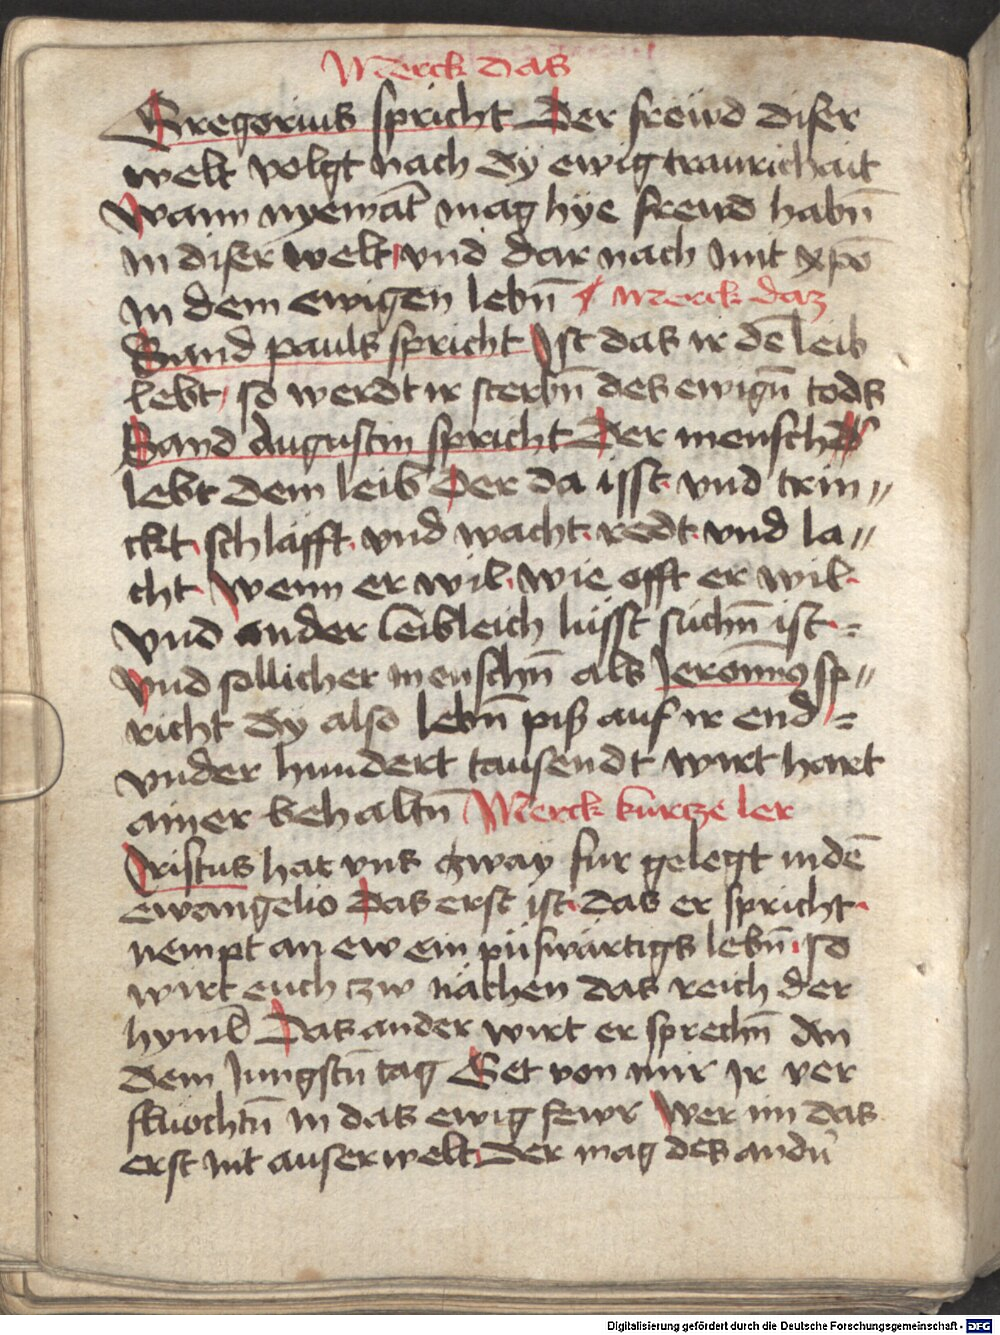 Merck das
Gregorius spricht Der frewd diser
welt volgt nach dy ewig traurichait
Wann nyemat̄ mag hye frewd habn̄
in diser welt und dar nach mit xpō
in dem ewigen lebn̄ Merck daz
Sand pauls spricht Ist das ir dē leib
lebt so werdt ir sterbn̄ des ewign̄ tods
Sand Augustin spricht Der mensch
lebt dem leib Der da isst und trin〃
ckt schläfft und wacht redt und la〃
cht Wenn er wil wie offt er wil
Und ander leibleich lüsst sůchn̄ ist =
Und sollicher menschn̄ als Jeronim9 sp〃
richt dy also lebn̄ piß auf ir end =
under hundert tausendt wirt hart
ainer behaltn̄ Merck kurtze ler
Cristus hat uns zway fur gelegt in dē
ewangelio Das erst ist das er spricht
nempt an ew ein půswärtigs lebn̄ so
wirt euch tzw nächen das reich der
hyml̄ Das ander wirt er sprechn̄ An
dem Jungstn̄ tag Get von mir ir ver
fluochtn̄ in das ewig fewr Wer im das
erst nit auserwelt Der mag des andn̄